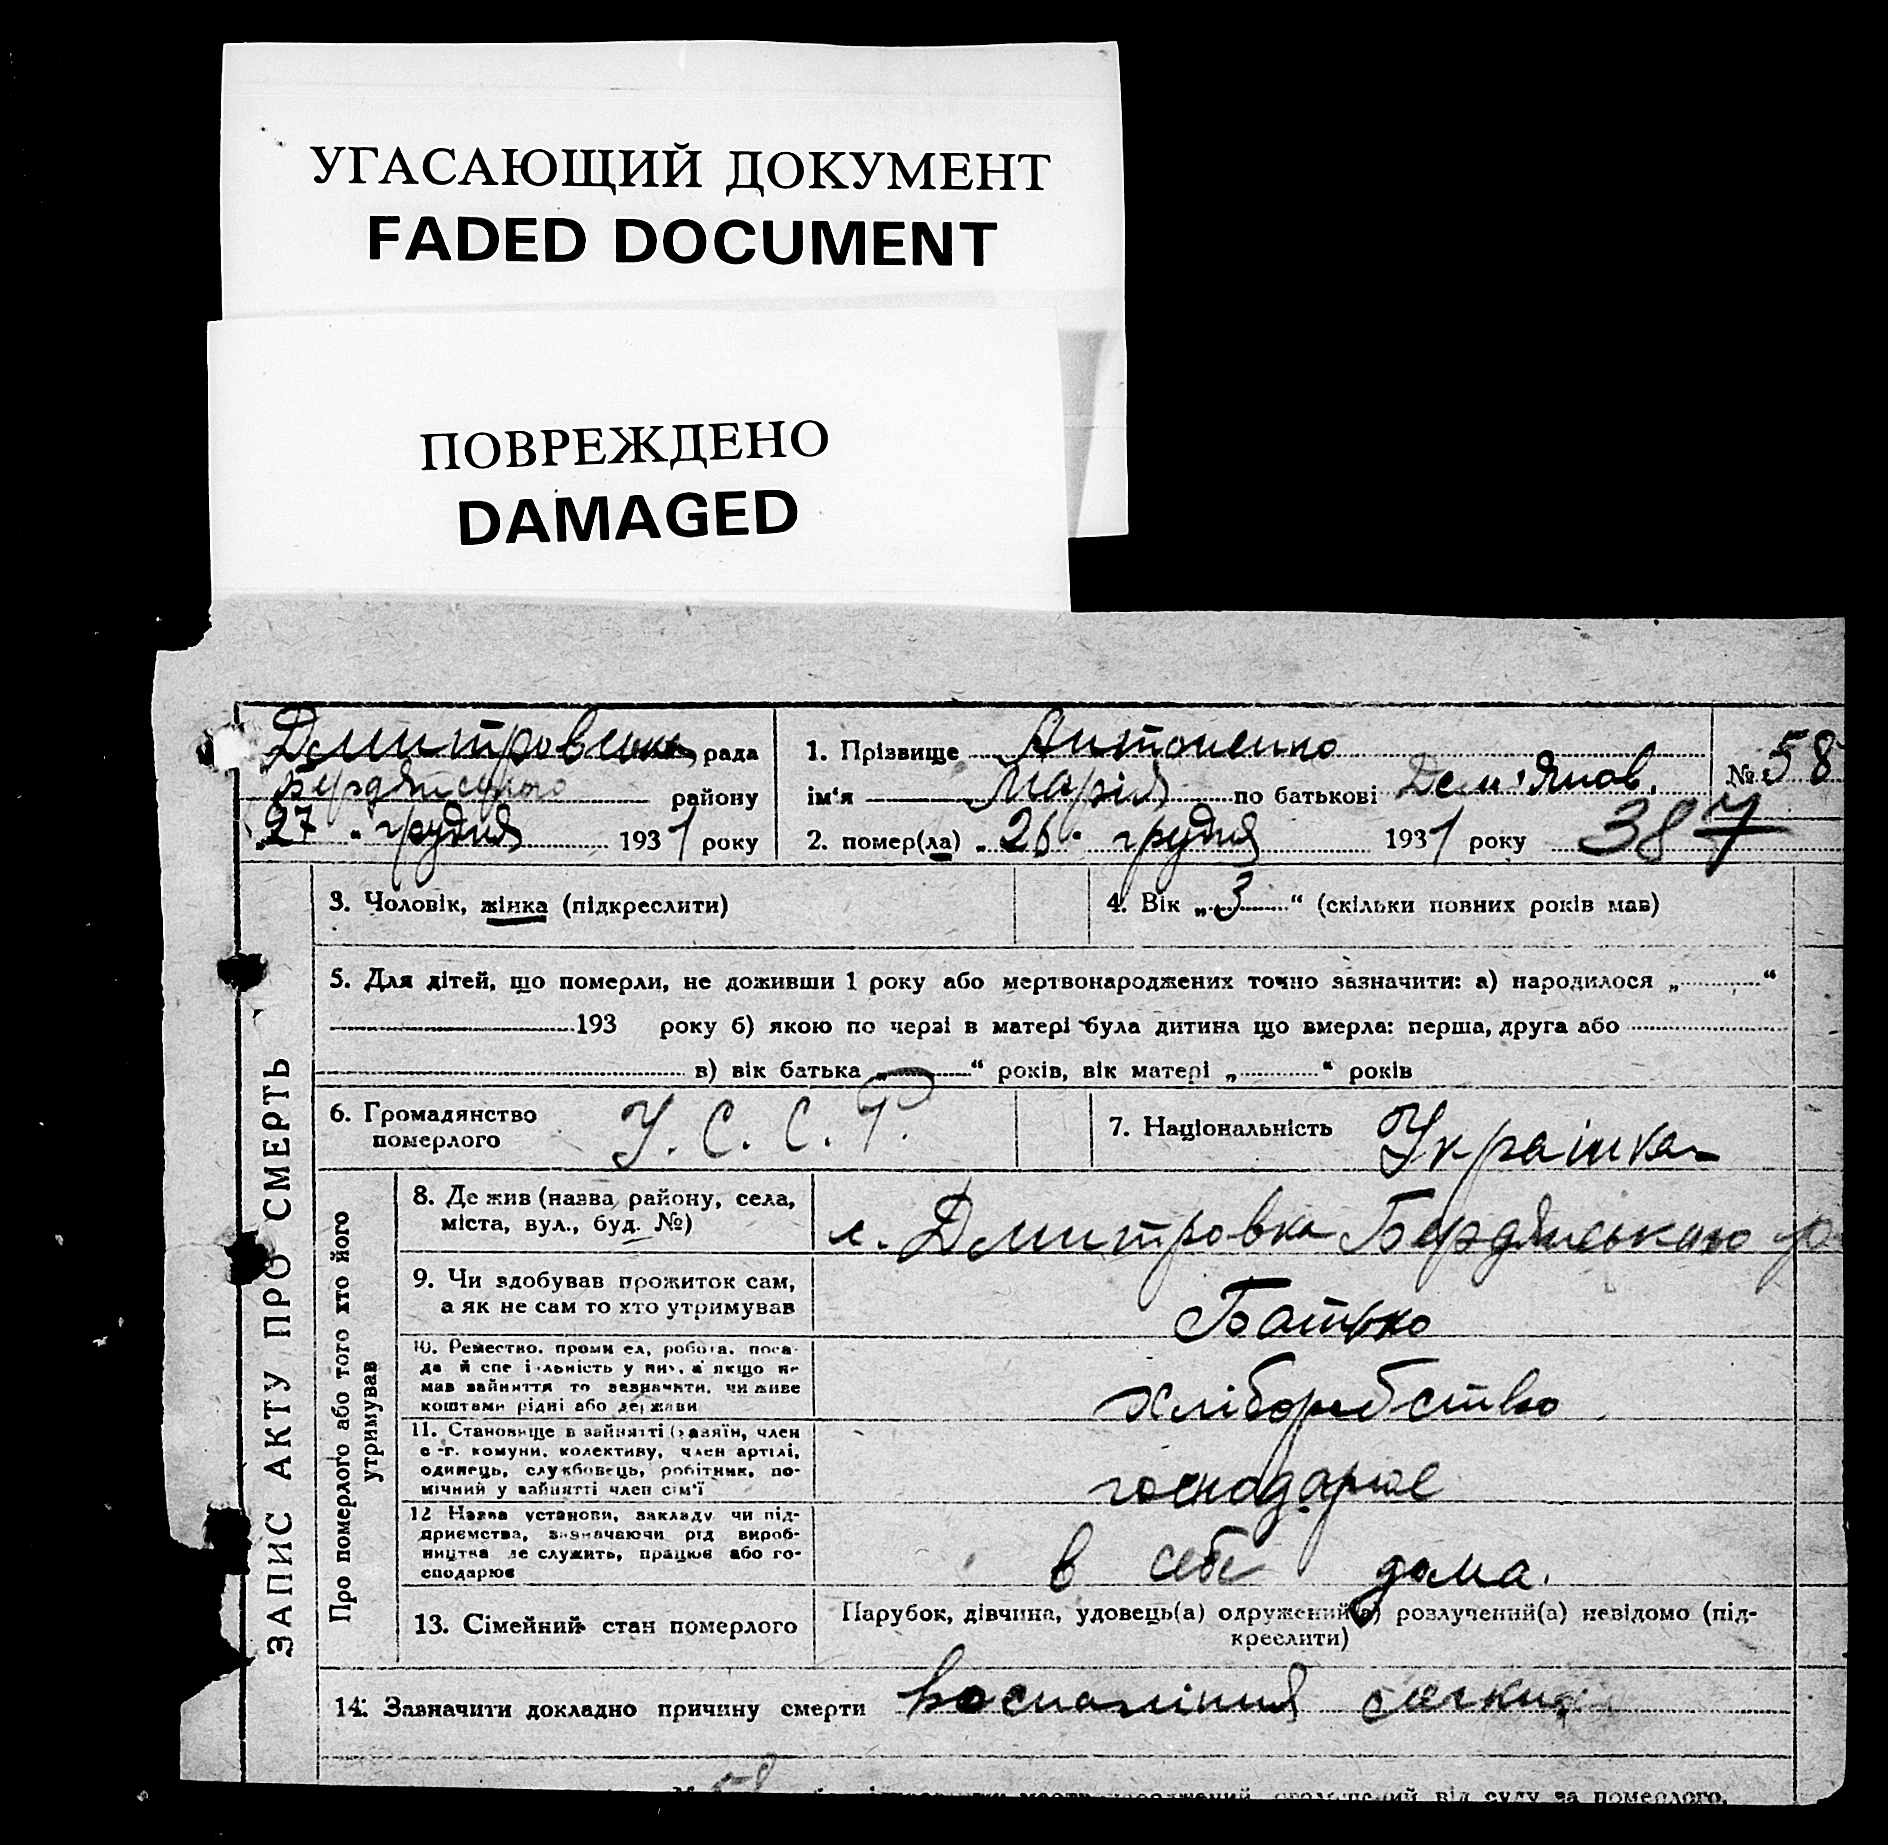 УГАСАЮЩИЙ ДОКУМЕНТ
FADED DOCUMENT
ПОВРЕЖДЕНО
DAMAGED
Дмитровська рада
Бердянського району
27 грудня 1931 року
1. Прізвище Антоненко
ім'я Марія по батькові Дем'янов.
№ 58
2. помер(ла) „26" грудня 1931 року 387
ЗАПИС АКТУ ПРО СМЕРТЬ
3. Чоловік, жінка (підкреслити)
4. Вік „3“ (скільки повних років мав)
5. Для дітей, що померли, не доживши 1 року або мертвонароджених точно зазначити: а) народилося „ “
193 року б) якою по черзі в матері була дитина що вмерла: перша, друга або
в) вік батька „ “ років, вік матері „ “ років
6. Громадянство
померлого
У. С. С. Р.
7. Національність Українка
Про померлого або того хто його
утримував
8. Де жив (назва району, села,
міста, вул., буд. №)
с. Дмитровка Бердянського р
9. Чи здобував прожиток сам,
а як не сам то хто утримував
Батько
10. Ремество, промисел, робота, поса-
да й спеціальність у них, а якщо не
мав зайняття то зазначити, чи живе
коштами рідні або держави
хліборобство
11. Становище в зайнятті (хазяїн, член
с-г. комуни, колективу, член артілі,
одинець, службовець, робітник, по-
мічний у зайнятті член сім'ї
господарює
12 Назва установи, закладу чи під-
приємства, зазначаючи рід вироб-
ництва де служить, працює або го-
сподарює
в себе дома.
13. Сімейний стан померлого
Парубок, дівчина, удовець(а) одружений(а) розлучений(а) невідомо (під-
креслити)
14. Зазначити докладно причину смерти Воспаління
від суду за померлого.